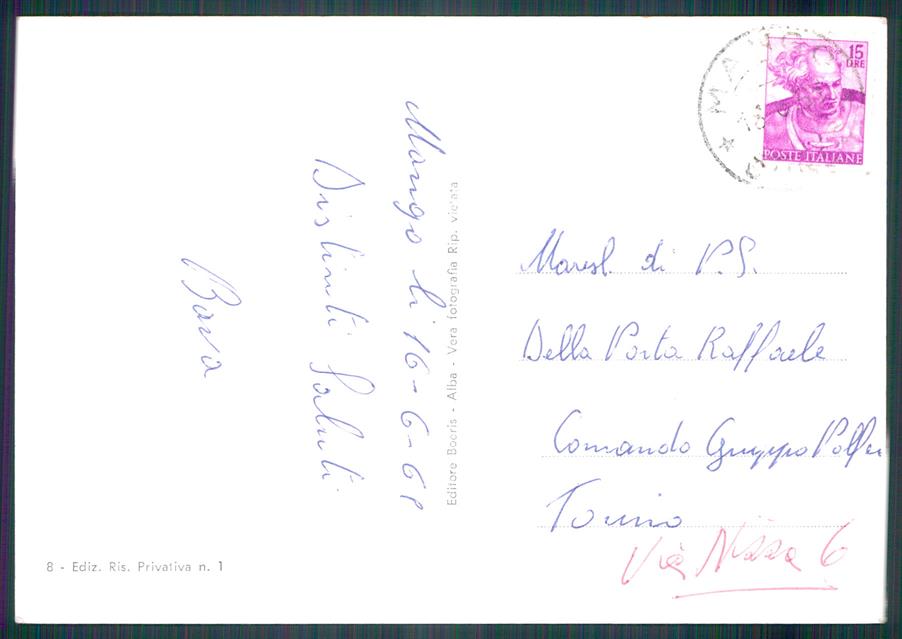 Mango li 16-6-68
Distinti Saluti
Bava
Editore Boeris - Alba - Vera fotografia Rip. vietata
8 - Ediz. Ris. Privativa n. 1
MANGO
15
LIRE
POSTE ITALIANE
Maresl. di P.S.
Della Porta Raffaele
Comando Gruppo Polfer
Torino
Via Nizza 6